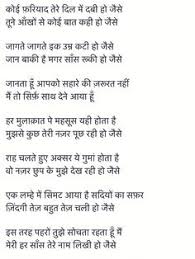 कोई फ़रियाद तेरे दिल में दबी हो जैसे
तूने आँखों से कोई बात कही हो जैसे
जागते जागते इक उम्र कटी हो जैसे
जान बाकी है मगर साँस रुकी हो जैसे
जानता हूँ आपको सहारे की ज़रूरत नहीं
मैं तो सिर्फ़ साथ देने आया हूँ
हर मुलाक़ात पे महसूस यही होता है
मुझसे कुछ तेरी नज़र पूछ रही हो जैसे
राह चलते हुए अक्सर ये गुमां होता है
वो नज़र छुप के मुझे देख रही हो जैसे
एक लम्हे में सिमट आया है सदियों का सफ़र
ज़िंदगी तेज़ बहुत तेज़ चली हो जैसे
इस तरह पहरों तुझे सोचता रहता हूँ मैं
मेरी हर साँस तेरे नाम लिखी हो जैसे